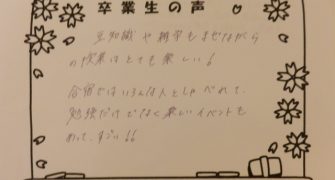 卒業生の声
豆知識や雑学もまぜながら
の授業はとても楽しい!
合宿ではいろんな人としゃべれて、
勉強だけでなく楽しいイベントも
あって、すごい!!